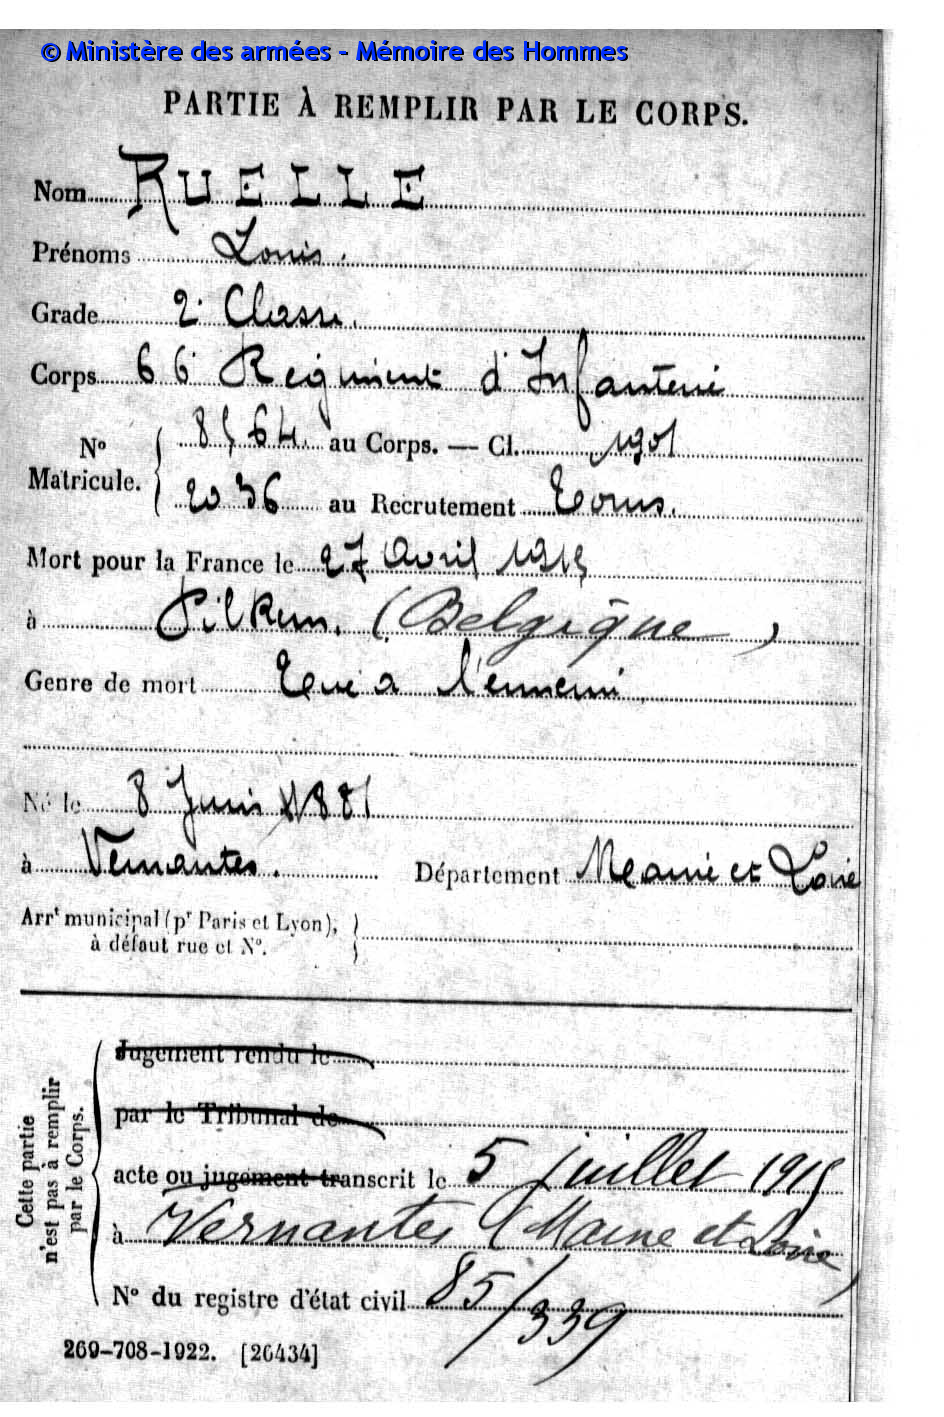 © Ministère des armées - Mémoire des Hommes
PARTIE À REMPLIR PAR LE CORPS.
Nom RUELLE
Prénoms Louis.
Grade 2e Classe.
Corps 66e Régiment d'Infanterie
Nº Matricule. 8564. au Corps. — Cl. 1901
2036 au Recrutement Tours.
Mort pour la France le 27 Avril 1915
à Pilkem. (Belgique)
Genre de mort Tué à l'ennemi
Né le 8 Juin 1881
à Vernantes. Département Maine et Loire
Arrt municipal (pr Paris et Lyon),
à défaut rue et Nº.
Cette partie
n'est pas à remplir
par le Corps.
Jugement rendu le
par le Tribunal de
acte ou jugement transcrit le 5 juillet 1915
à Vernantes (Maine et Loire)
Nº du registre d'état civil 85/339
269-708-1922. [26434]